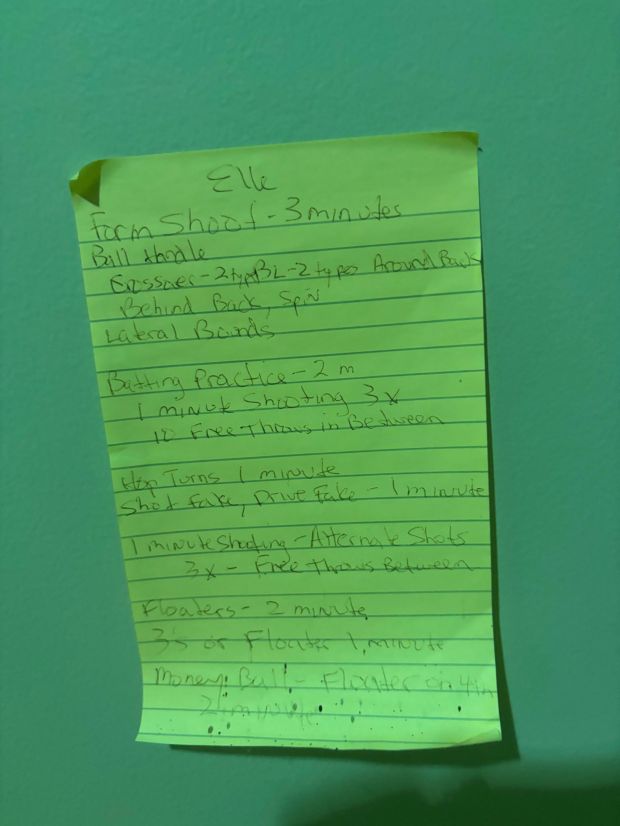 Elle
Form Shoot - 3 minutes
Ball Handle
- 2 types BL - 2 types Around Back
Behind Back, Spin
Lateral Bounds
Batting Practice - 2 m
1 minute Shooting 3x
10 Free Throws in Between
Turns 1 minute
Shot Fake, Drive Fake - 1 minute
1 minute Shooting - Alternate Shots
3x - Free Throws Between
Floaters - 2 minute
3's or Floater 1 minute
Money Ball - Floater on 4th
2 minute